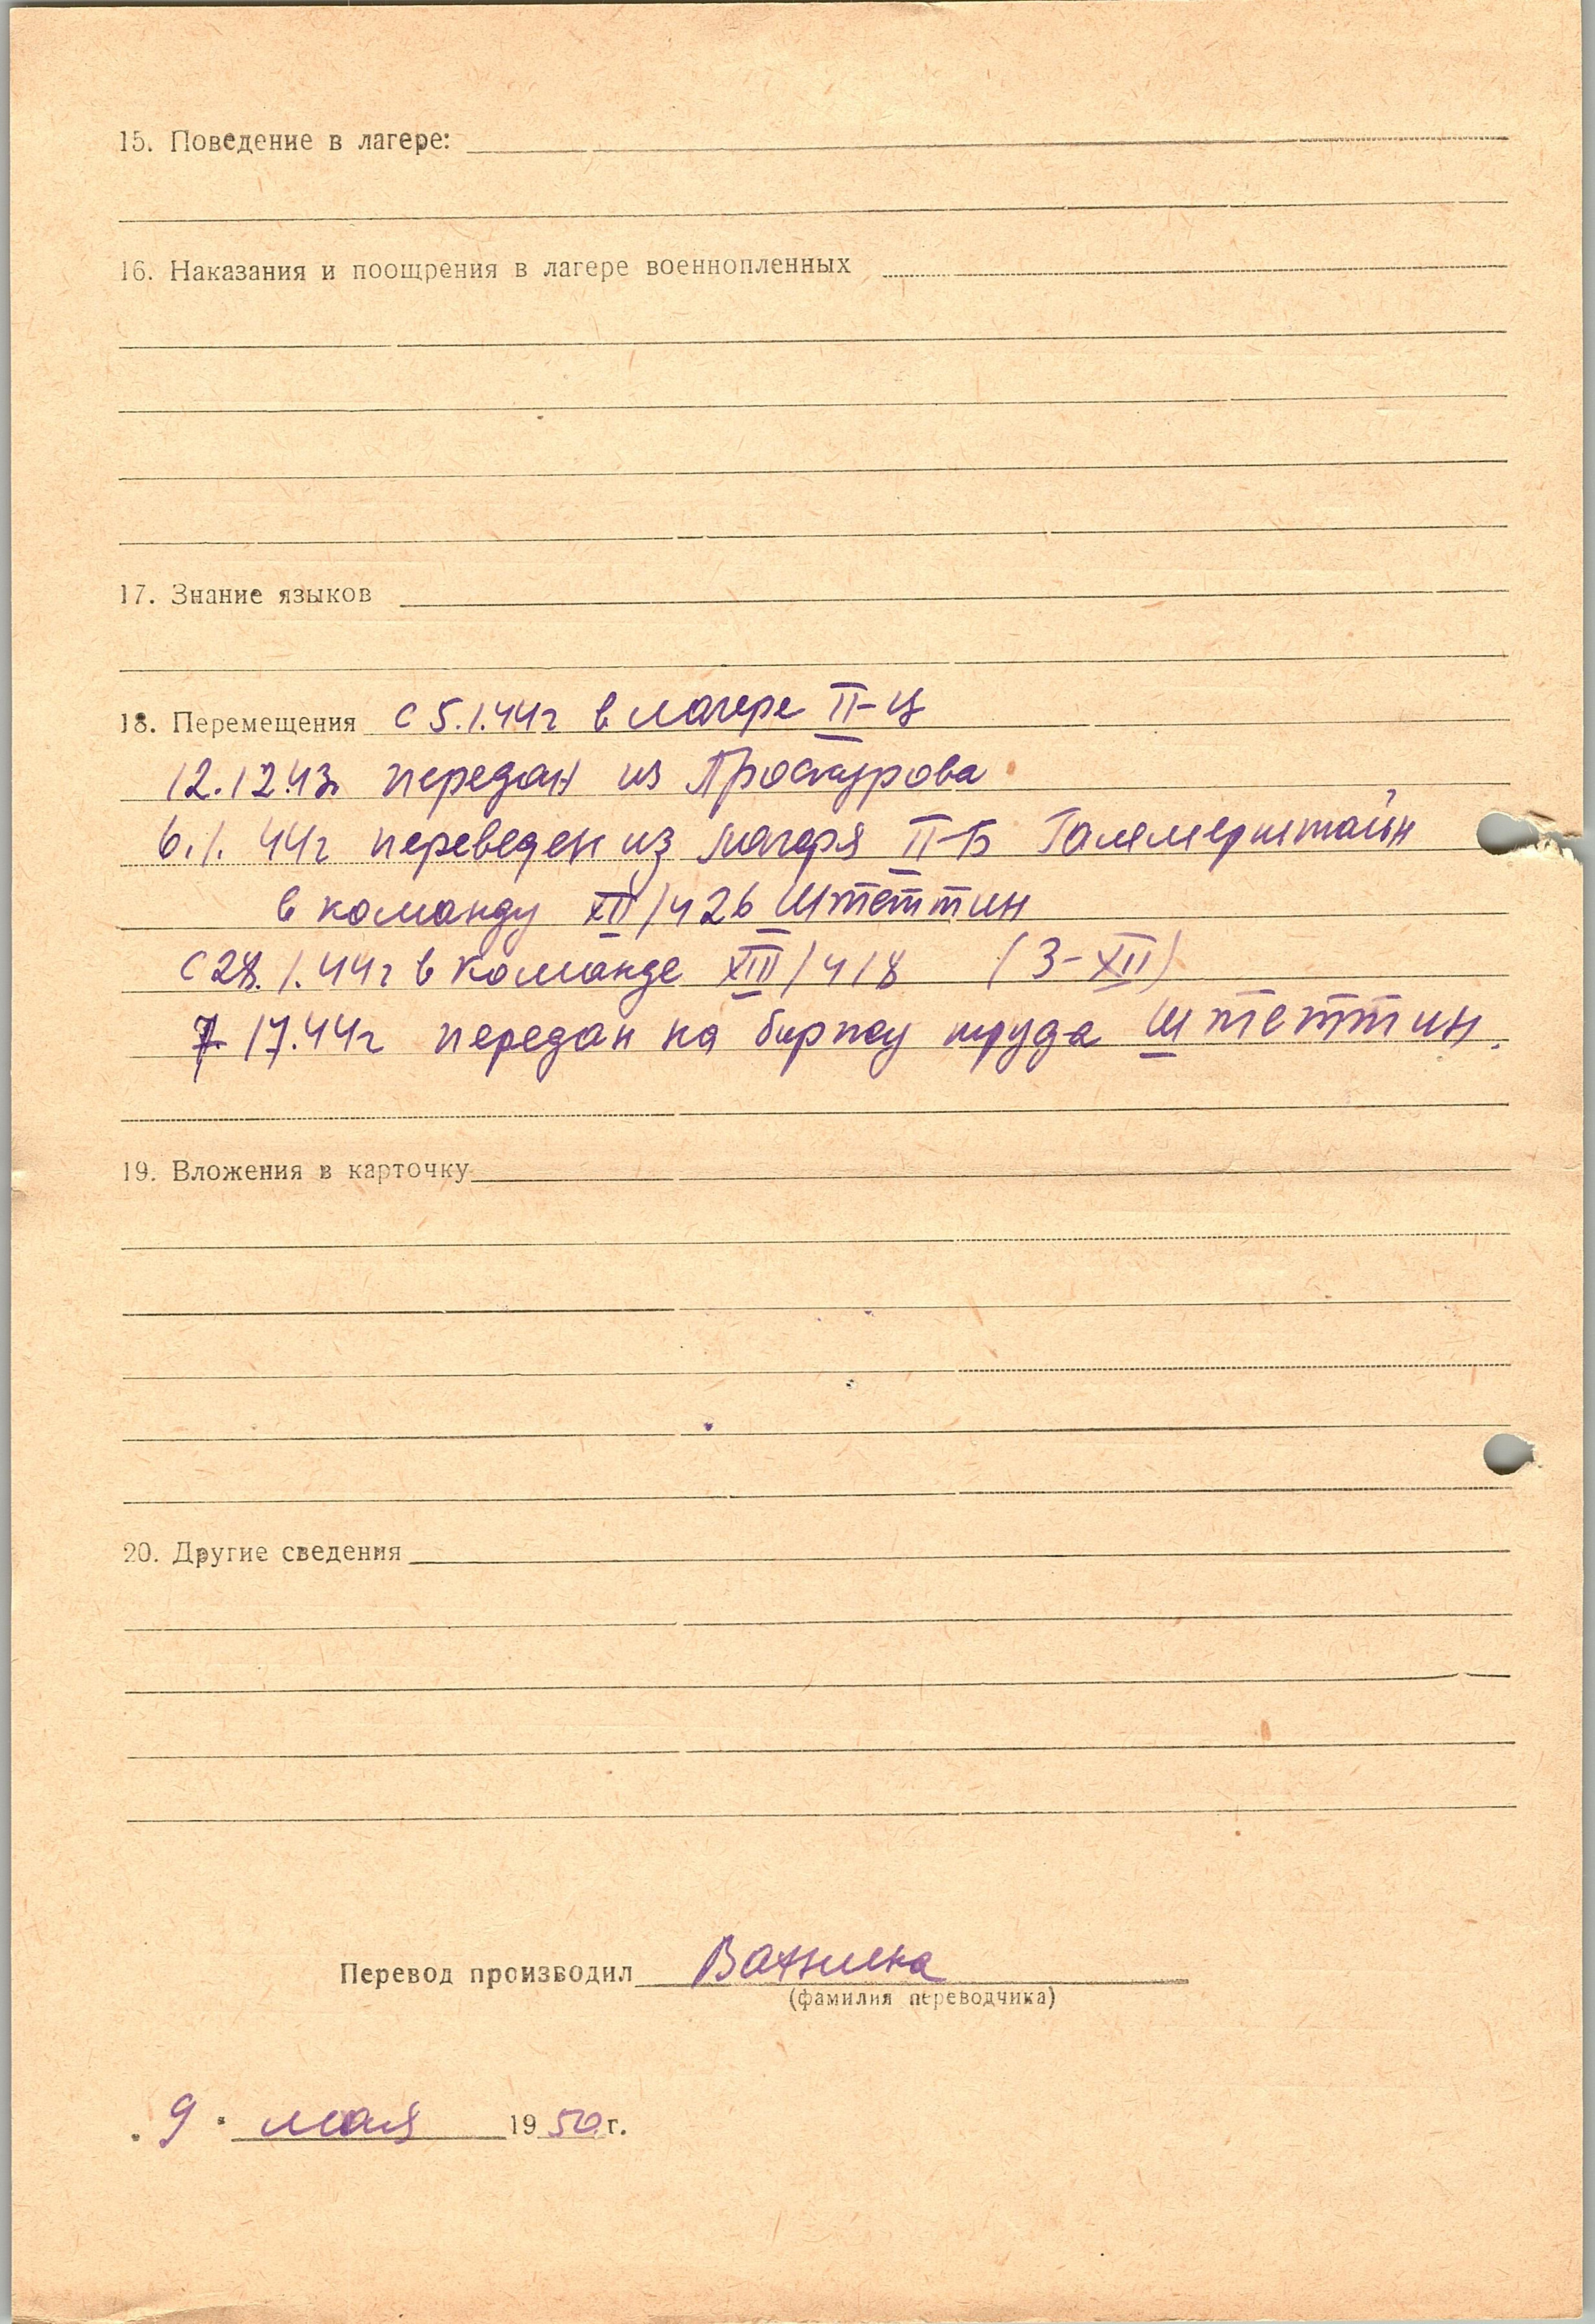 15. Поведение в лагере:
16. Наказания и поощрения в лагере военнопленных
17. Знание языков
18. Перемещения с 5.1.44г в лагере II-Ц
12.12.43г. передан из Проскурова
6.1.44г переведен из лагеря II-Б Гаммерштайн
в команду XII/426 Штеттин
с 28.1.44г в команде XIII/418 (3-XII)
передан на биржу труда Штеттин.
19. Вложения в карточку
20. Другие сведения
Перевод производил
(фамилия переводчика)
„9" мая 1950 г.